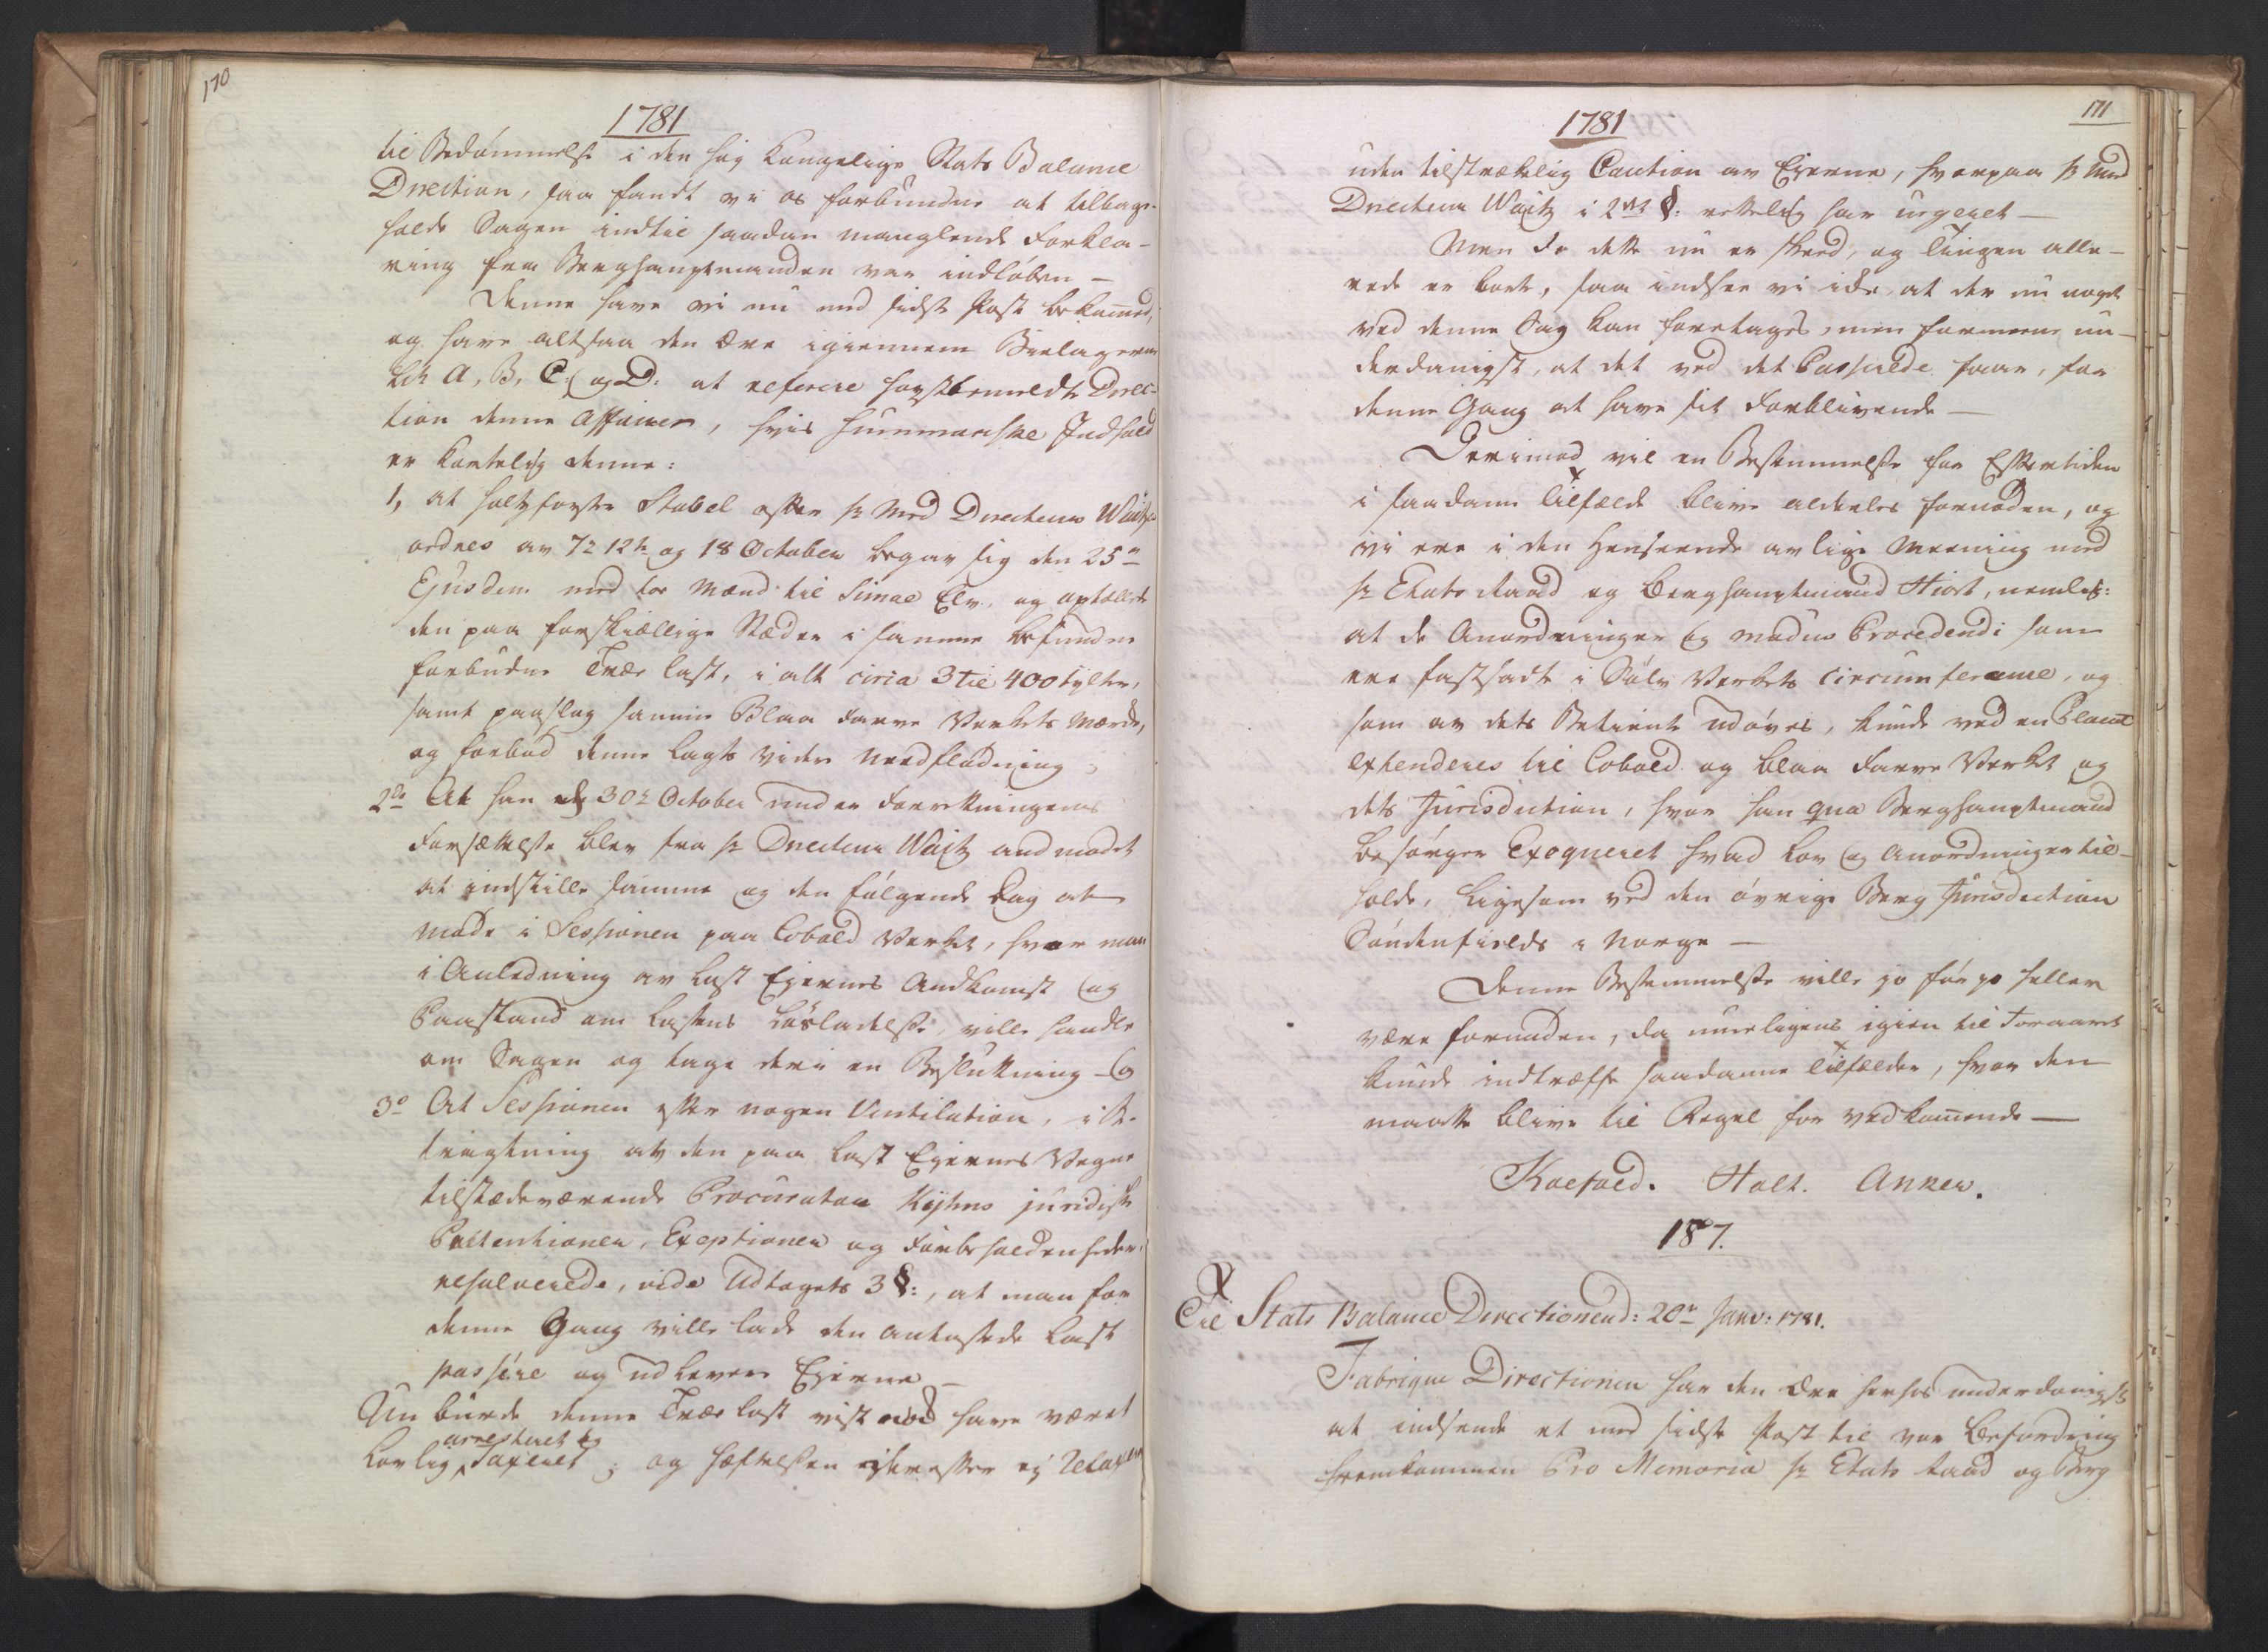 170
1781
til Bedömmelse i den høy Kongelige Stats Balance
Direction, saa fandt vi os forbundne at tilbage-
holde Sagen indtil saadan manglende Forkla-
ring fra Berghauptmanden var indløben —
Denne have vi nu med sidste Post bekommed,
og have altsaa den Ære igiennem Bielagerne
Litr A, B, C: og D: at referere høystbemeldte Direc-
tion denne Affairer, hvis summariske Indhold
er kortelig denne:
1, at Holtzførster Stabel efter Hr Med Directeur Waitz
ordres av 7de 12te og 18 October begav sig den 25de
Ejusdem med to Mænd til Simoe Elv, og optællede
den paa forskiællige Stæder i samme befundne
forbudne Træ last, i alt circa 3 til 400 tylter,
samt paaslog samme Blaa Farve Verkets Mærke,
og forbød denne Lasts videre Nedflødning;
2do At han d 30te October under Forretningens
Forsættelse blev fra Hr Directeur Waitz andmodet
at indstille samme og den følgende Dag at
møde i Sessionen paa Cobold Verket, hvor man
i Anledning av Last Eyernes Andkomst og
Paastand om Lastens Løsladelse, ville handle
om Sagen og tage deri en Beslutning — Og
3o At Sessionen efter nogen Ventilation, i Be-
tragtning av den paa Last Eyernes Vegne
tilstædeværende Procurator Kyhns juridiske
Protentioner, Exeptioner og Forbeholdenheder,
resolverede, vide Udtogets 3 §:, at man for
denne Gang ville lade den antastede Last
passere og udlevere Eyerne —
Nu burde denne Træ last vist nok have været
arresteret og
Lovlig Taxeret; og Hæftelsen derefter ej relaxer
171
1781
uden tilstræklig Caution av Eyerne, hvorpaa Hr Med
Directeur Waitz i 2det §: rettelig har urgeret —
Men da dette nu er skeed, og Tingen alle-
rede er borte, saa indsee vi ikke at der nu noget
ved denne Sag kan foretages, men formeene un-
derdanigst, at det ved det Passerede faaer, for
denne Gang at have sit Forblivende —
Derimod vil en Bestemmelse for Eftertiden
i saadanne Tilfælde blive aldeles fornøden, og
vi ere i den Henseende av lige Meening med
Hr Etats Raad og Berghauptmand Hiort, nemlig:
at de Anordninger og modus Procedendi som
ere fastsadte i Sølv Verkets Circumference, og
som av dets Betiente udøves, kunde ved en Placat
extenderes til Cobold og blaa Farve Verket og
dets Jurisdiction, hvor han qua Berghauptmand
besørger Exeqveret hvad Lov og Anordninger til-
holde, ligesom ved den øvrige Berg Jurisdiction
Søndenfields i Norge —
Denne Bestemmelse ville jo før jo heller
være fornøden, da mueligens igien til Foraaret
kunde indtræffe saadanne Tilfælder, hvor den
maatte blive til Regel for vedkommende —
Koefoed. Holt. Anker.
187.
Til Stats Balance Directionen d: 20de Janv: 1781.
Fabrique Directionen har den Ære herhos underdanigst
at indsende et med sidste Post til vor Befordring
fremkommen Pro Memoria Hr Etats Raad og Berg